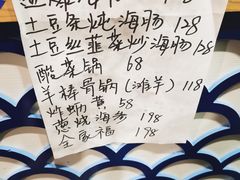 土豆条炖海肠 128
土豆丝韭菜炒海肠 128
酸菜锅 68
羊棒骨锅(滩羊) 118
炸蛎黄 58
葱烧海参 198
全家福 198